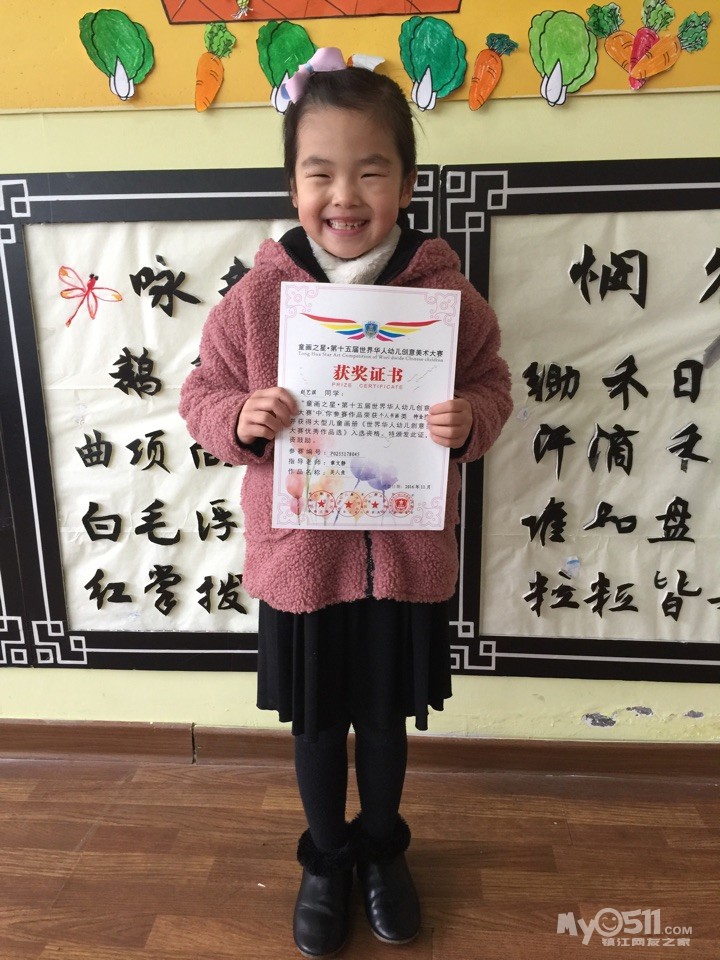 咏
鹅
曲项
白毛浮
红掌拨
悯
锄禾日
汗滴禾
谁知盘
粒粒皆
童画之星•第十五届世界华人幼儿创意美术大赛
Tong Hua Star Art Competition of Worl dwide Chinese children
获奖证书
PRIZE CERTIFICATE
同学：
"童画之星•第十五届世界华人幼儿创意
大赛"中,你参赛作品荣获
并获得大型儿童画册《世界华人幼儿创意
大赛优秀作品选》入选资格,特颁发此证,
资鼓励。
参赛编号：P0233178047
指导老师：
作品名称：
2016年11月
MY0511.COM
镇江网友之家